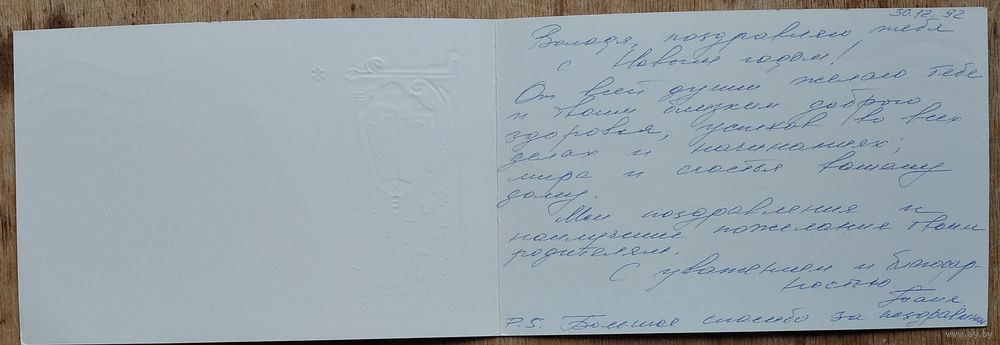 30.12.92
Володя, поздравляю тебя
с Новым годом!
От всей души желаю тебе
и твоим близким доброго
здоровья, успехов во всех
делах и начинаниях,
мира и счастья вашему
дому.
Мои поздравления и
наилучшие пожелания твоим
родителям.
С уважением и благодар-
ностью
Таня.
P.S. Большое спасибо за поздравления